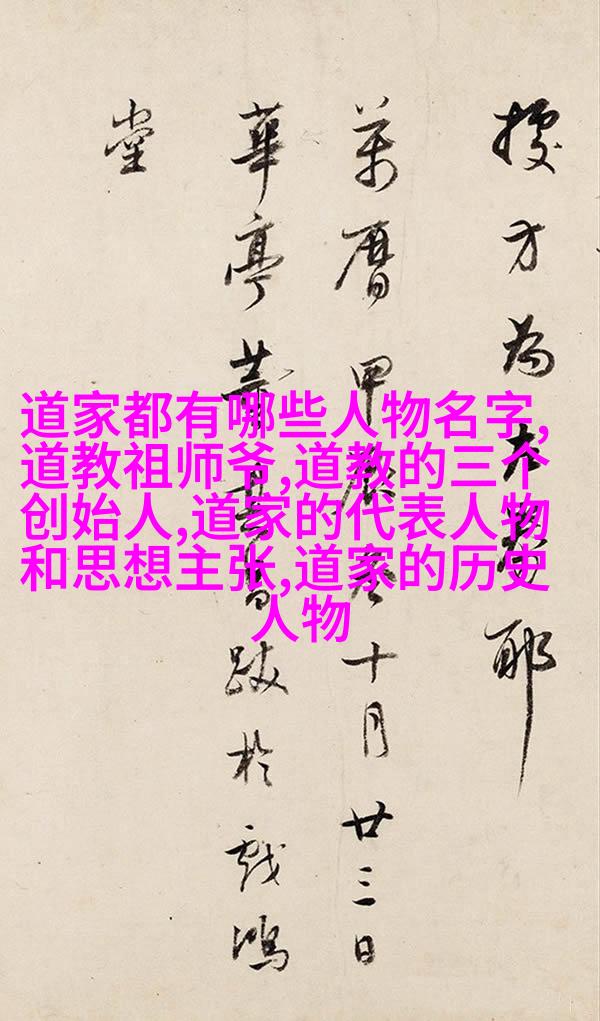 方為耶
萬曆甲辰十月廿三日
華亭董其昌跋於戲鴻
堂
道家都有哪些人物名字,
道教祖师爷,道教的三个
创始人,道家的代表人物
和思想主张,道家的历史
人物